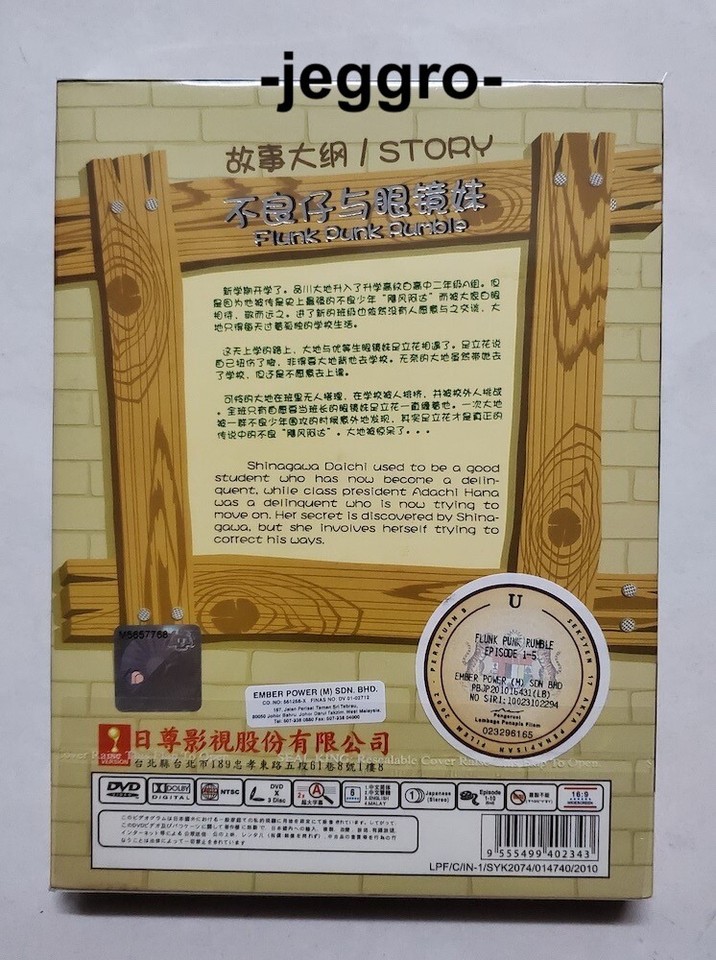 -jeggro-
故事大纲 / STORY
不良仔与眼镜妹
Flunk Punk Rumble
新学期开学了。品川大地升入了升学高纹白高中二年级A组。但
是因为他被传是史上最强的不良少年“飓风阿达”而被大家白眼
相待，敬而远之。进了新的班级也依然没有人愿意与之交谈，大
地只得每天过着孤独的学校生活。
这天上学的路上，大地与优等生眼镜妹足立花相遇了。足立花说
自己扭伤了脚，非得要大地背他去学校。无奈的大地虽然带她去
了学校，但还是不愿意去上课。
可怜的大地在班里无人搭理，在学校被人挑桥，并被校外人挑战
。全班只有自愿要当班长的眼镜妹足立花一直缠着他。一次大地
被一群不良少年围攻的时候意外地发现，其实足立花才是真正的
传说中的不良“飓风阿达”。大地被惊呆了・・・
Shinagawa Daichi used to be a good
student who has now become a delin-
quent, while class president Adachi Hana
was a delinquent who is now trying to
move on. Her secret is discovered by Shina-
gawa, but she involves herself trying to
correct his ways.
U
PERAKUAN B
SEKSYEN 17 AKTA PENAPISAN FILEM 2002
FLUNK PUNK RUMBLE
EPISODE 1-5
EMBER POWER (M) SDN BHD
PBJP201016431(LB)
NO SIRI:10023102294
Pengerusi
Lembaga Penapis Filem
023296165
M5657768
EMBER POWER (M) SDN. BHD.
197, Jalan Perisai Taman Sri Tebrau,
80050 Johor Bahru Johor Darul Takzim. West Malaysia.
VERSION
日尊影視股份有限公司
台北縣台北市189忠孝東路五段61巷8號1樓8
SEAL KING. Resealable Cover
To Open
DVD
DOLBY
DIGITAL
NTSC
DVD
X
3 Disc
A
超大字幕
6
1.中文繁體
2.中文簡體
3.ENGLISH
4.MALAY
1
Japanese
(Stereo)
Episode
1-10
16:9
9 555499 402343
LPF/C/IN-1/SYK2074/014740/2010